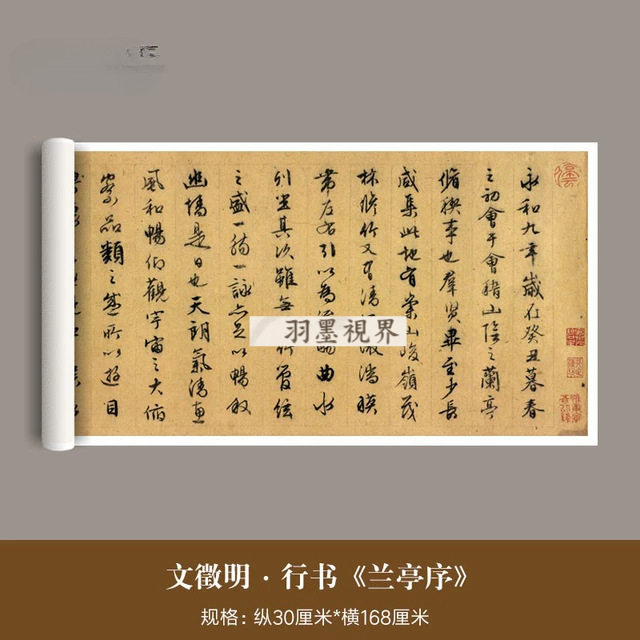 永和九年歲在癸丑暮春
之初會于會稽山陰之蘭亭
脩稧事也羣賢畢至少長
咸集此地有崇山峻嶺茂
林脩竹又有清激湍暎
帶左右引以為曲水
列坐其次雖無管絃
之盛一觴一詠亦足以暢叙
幽情是日也天朗氣清惠
風和暢仰觀宇宙之大俯
察品類之盛所以遊目
羽墨視界
文徵明·行书《兰亭序》
规格：纵30厘米*横168厘米